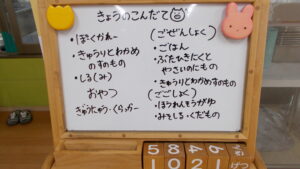 きょうのこんだて
・ぽーくかれー
・きゅうりとわかめ
のすのもの
・しる(み)
おやつ
ぎゅうにゅう・くらっかー
(ごぜんしょく)
・ごはん
・ぶたひきにくと
やさいのにもの
・きゅうりとわかめのすのもの
(ごごしょく)
・ほうれんそうがゆ
・みそしる・くだもの
5 8 4 6
1 0 2 1 げつ